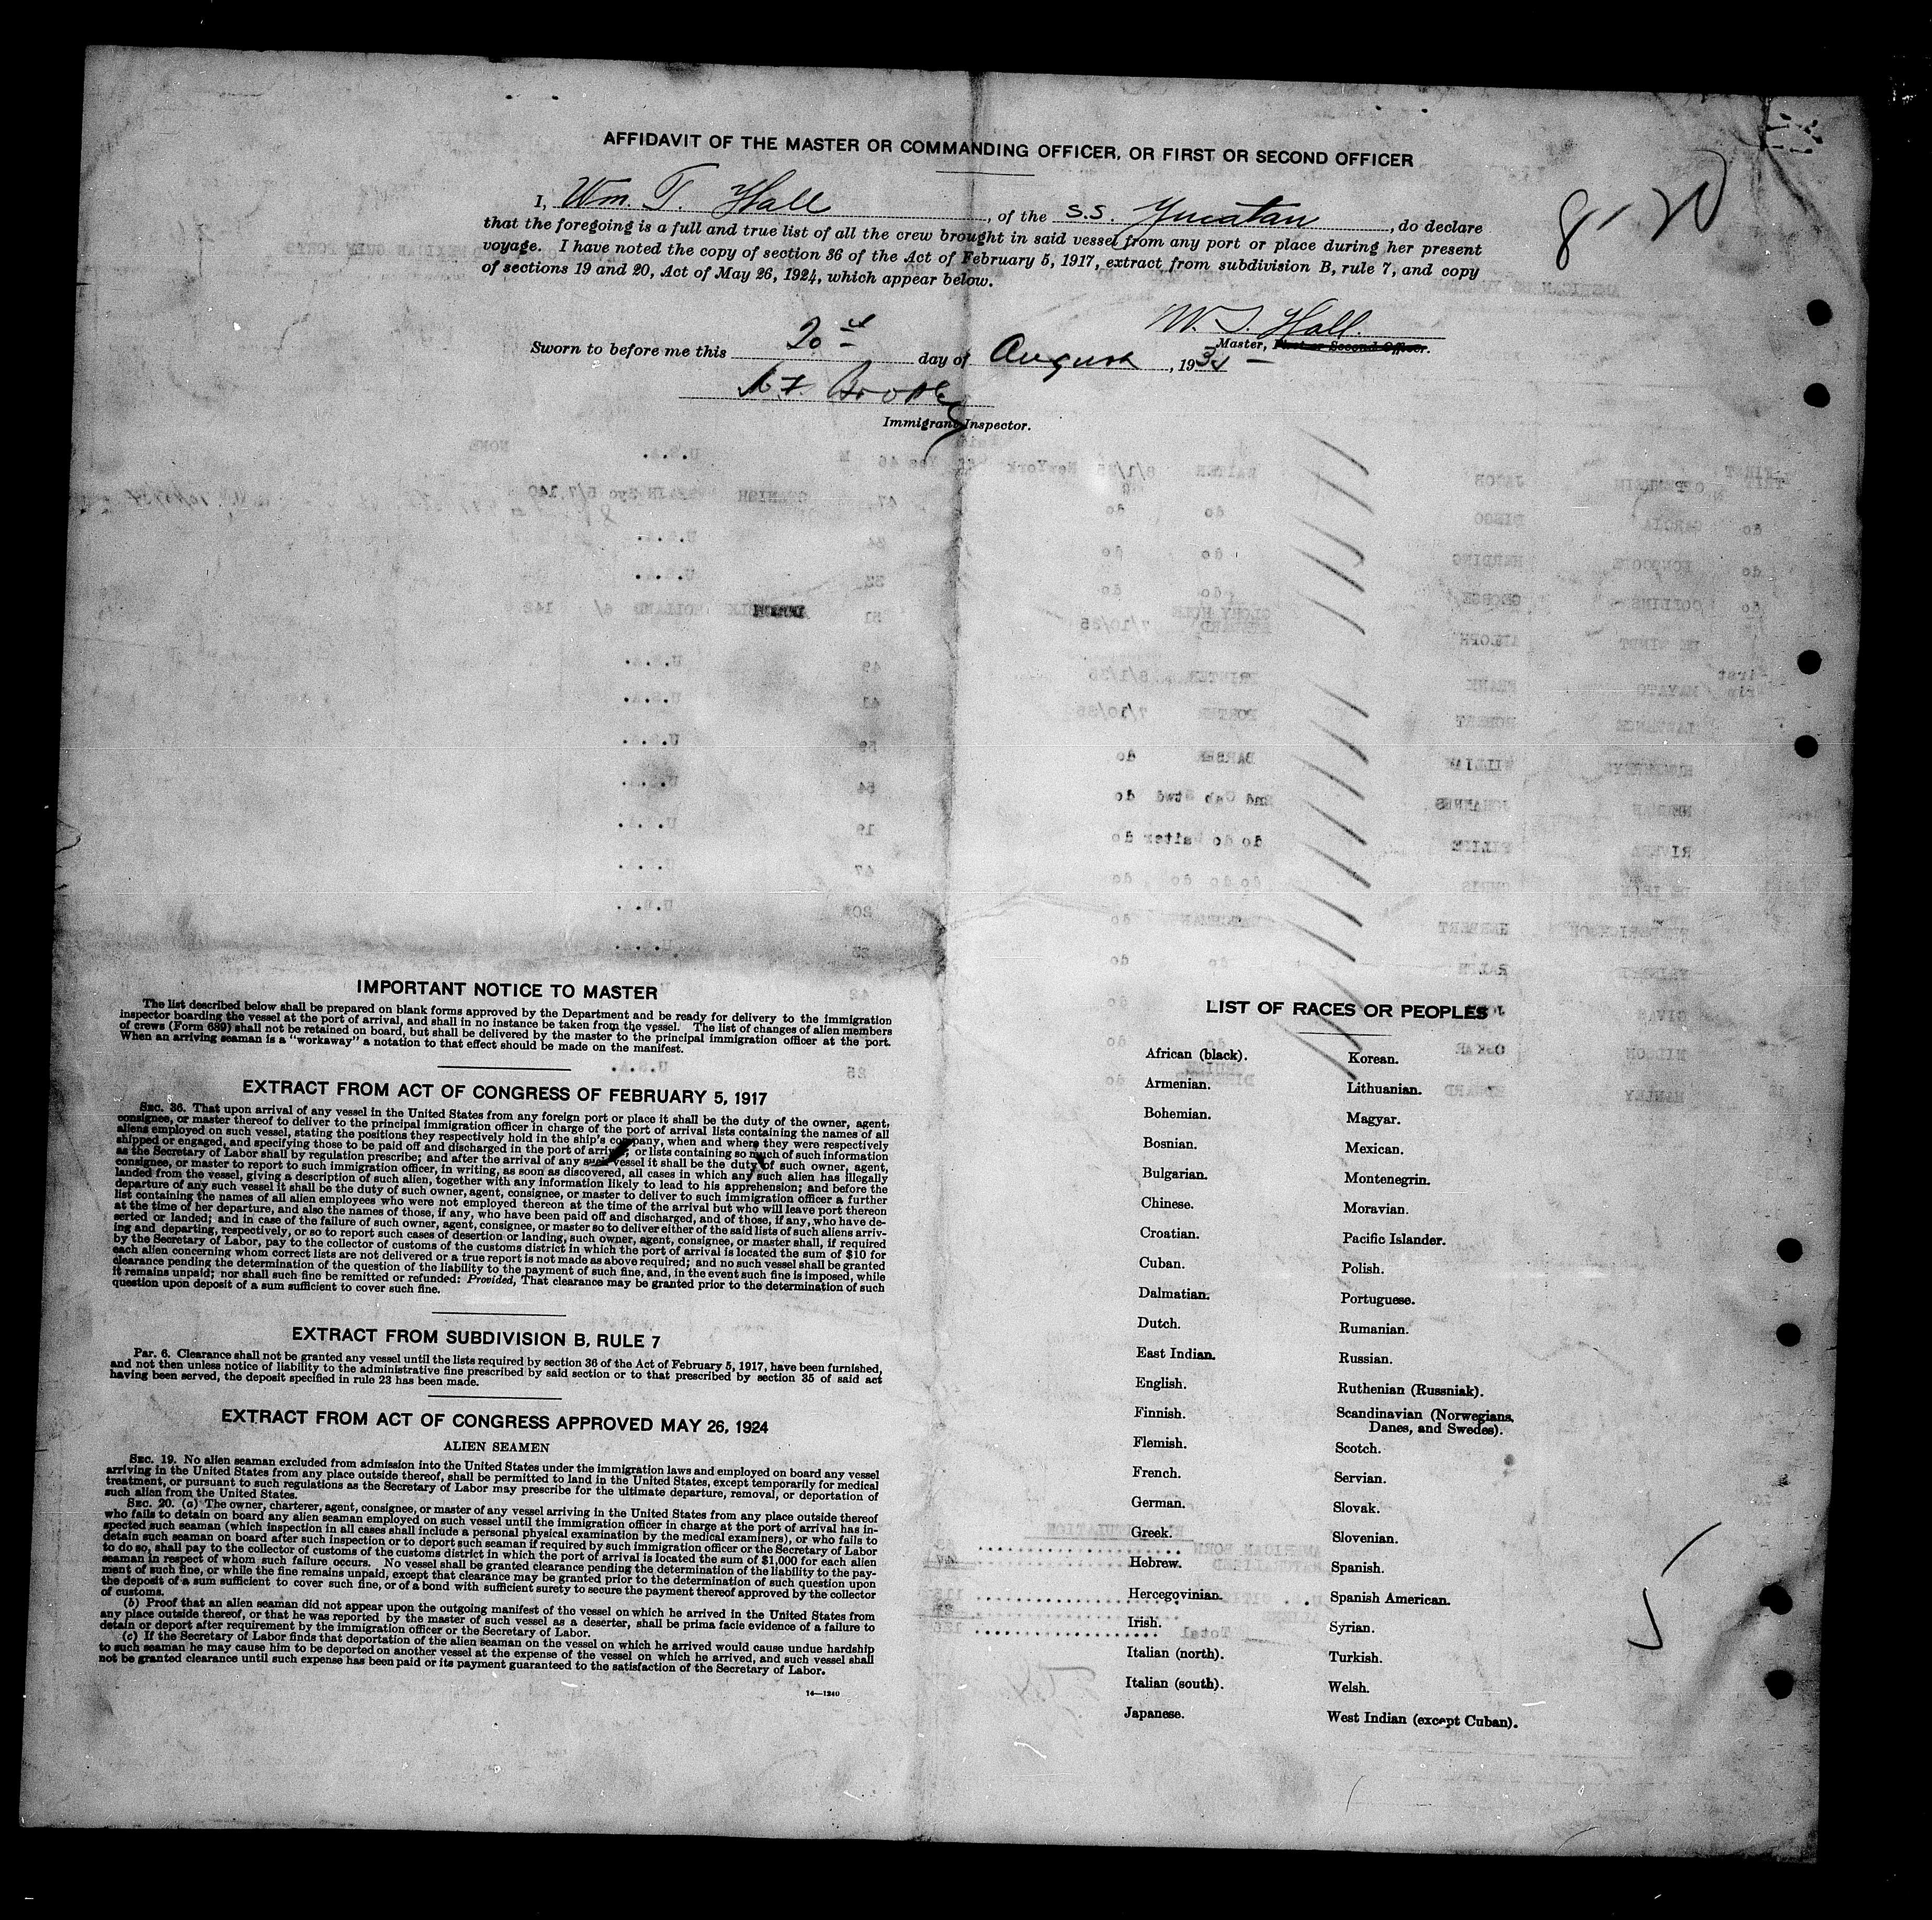 AFFIDAVIT OF THE MASTER OR COMMANDING OFFICER, OR FIRST OR SECOND OFFICER
8-20
I, Wm. T. Hall, of the S.S. Yucatan, do declare
that the foregoing is a full and true list of all the crew brought in said vessel from any port or place during her present
voyage. I have noted the copy of section 36 of the Act of February 5, 1917, extract from subdivision B, rule 7, and copy
of sections 19 and 20, Act of May 26, 1924, which appear below.
W. T. Hall.
Master, First or Second Officer.
Sworn to before me this 20 day of August, 193
Immigrant Inspector.
IMPORTANT NOTICE TO MASTER
The list described below shall be prepared on blank forms approved by the Department and be ready for delivery to the immigration
inspector boarding the vessel at the port of arrival, and shall in no instance be taken from the vessel. The list of changes of alien members
of crews (Form 689) shall not be retained on board, but shall be delivered by the master to the principal immigration officer at the port.
When an arriving seaman is a "workaway" a notation to that effect should be made on the manifest.
EXTRACT FROM ACT OF CONGRESS OF FEBRUARY 5, 1917
SEC. 36. That upon arrival of any vessel in the United States from any foreign port or place it shall be the duty of the owner, agent,
consignee, or master thereof to deliver to the principal immigration officer in charge of the port of arrival lists containing the names of all
aliens employed on such vessel, stating the positions they respectively hold in the ship's company, when and where they were respectively
shipped or engaged, and specifying those to be paid off and discharged in the port of arrival; or lists containing so much of such information
as the Secretary of Labor shall by regulation prescribe; and after the arrival of any such vessel it shall be the duty of such owner, agent,
consignee, or master to report to such immigration officer, in writing, as soon as discovered, all cases in which any such alien has illegally
landed from the vessel, giving a description of such alien, together with any information likely to lead to his apprehension; and before the
departure of any such vessel it shall be the duty of such owner, agent, consignee, or master to deliver to such immigration officer a further
list containing the names of all alien employees who were not employed thereon at the time of the arrival but who will leave port thereon
at the time of her departure, and also the names of those, if any, who have been paid off and discharged, and of those, if any, who have de-
serted or landed; and in case of the failure of such owner, agent, consignee, or master so to deliver either of the said lists of such aliens arriv-
ing and departing, respectively, or so to report such cases of desertion or landing, such owner, agent, consignee, or master shall, if required
by the Secretary of Labor, pay to the collector of customs of the customs district in which the port of arrival is located the sum of $10 for
each alien concerning whom correct lists are not delivered or a true report is not made as above required; and no such vessel shall be granted
clearance pending the determination of the question of the liability to the payment of such fine, and, in the event such fine is imposed, while
it remains unpaid; nor shall such fine be remitted or refunded: Provided, That clearance may be granted prior to the determination of such
question upon deposit of a sum sufficient to cover such fine.
EXTRACT FROM SUBDIVISION B, RULE 7
Par. 6. Clearance shall not be granted any vessel until the lists required by section 36 of the Act of February 5, 1917, have been furnished,
and not then unless notice of liability to the administrative fine prescribed by said section or to that prescribed by section 35 of said act
having been served, the deposit specified in rule 23 has been made.
EXTRACT FROM ACT OF CONGRESS APPROVED MAY 26, 1924
ALIEN SEAMEN
SEC. 19. No alien seaman excluded from admission into the United States under the immigration laws and employed on board any vessel
arriving in the United States from any place outside thereof, shall be permitted to land in the United States, except temporarily for medical
treatment, or pursuant to such regulations as the Secretary of Labor may prescribe for the ultimate departure, removal, or deportation of
such alien from the United States.
SEC. 20. (a) The owner, charterer, agent, consignee, or master of any vessel arriving in the United States from any place outside thereof
who fails to detain on board any alien seaman employed on such vessel until the immigration officer in charge at the port of arrival has in-
spected such seaman (which inspection in all cases shall include a personal physical examination by the medical examiners), or who fails to
detain such seaman on board after such inspection or to deport such seaman if required by such immigration officer or the Secretary of Labor
to do so, shall pay to the collector of customs of the customs district in which the port of arrival is located the sum of $1,000 for each alien
seaman in respect of whom such failure occurs. No vessel shall be granted clearance pending the determination of the liability to the pay-
ment of such fine, or while the fine remains unpaid, except that clearance may be granted prior to the determination of such question upon
the deposit of a sum sufficient to cover such fine, or of a bond with sufficient surety to secure the payment thereof approved by the collector
of customs.
(b) Proof that an alien seaman did not appear upon the outgoing manifest of the vessel on which he arrived in the United States from
any place outside thereof, or that he was reported by the master of such vessel as a deserter, shall be prima facie evidence of a failure to
detain or deport after requirement by the immigration officer or the Secretary of Labor.
(c) If the Secretary of Labor finds that deportation of the alien seaman on the vessel on which he arrived would cause undue hardship
to such seaman he may cause him to be deported on another vessel at the expense of the vessel on which he arrived, and such vessel shall
not be granted clearance until such expense has been paid or its payment guaranteed to the satisfaction of the Secretary of Labor.
14—1240
LIST OF RACES OR PEOPLES
African (black).
Armenian.
Bohemian.
Bosnian.
Bulgarian.
Chinese.
Croatian.
Cuban.
Dalmatian.
Dutch.
East Indian.
English.
Finnish.
Flemish.
French.
German.
Greek.
Hebrew.
Hercegovinian.
Irish.
Italian (north).
Italian (south).
Japanese.
Korean.
Lithuanian.
Magyar.
Mexican.
Montenegrin.
Moravian.
Pacific Islander.
Polish.
Portuguese.
Rumanian.
Russian.
Ruthenian (Russniak).
Scandinavian (Norwegians,
Danes, and Swedes).
Scotch.
Servian.
Slovak.
Slovenian.
Spanish.
Spanish American.
Syrian.
Turkish.
Welsh.
West Indian (except Cuban).
5